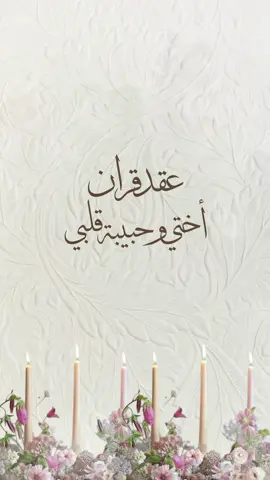 عقد قران
أختي وحبيبة قلبي